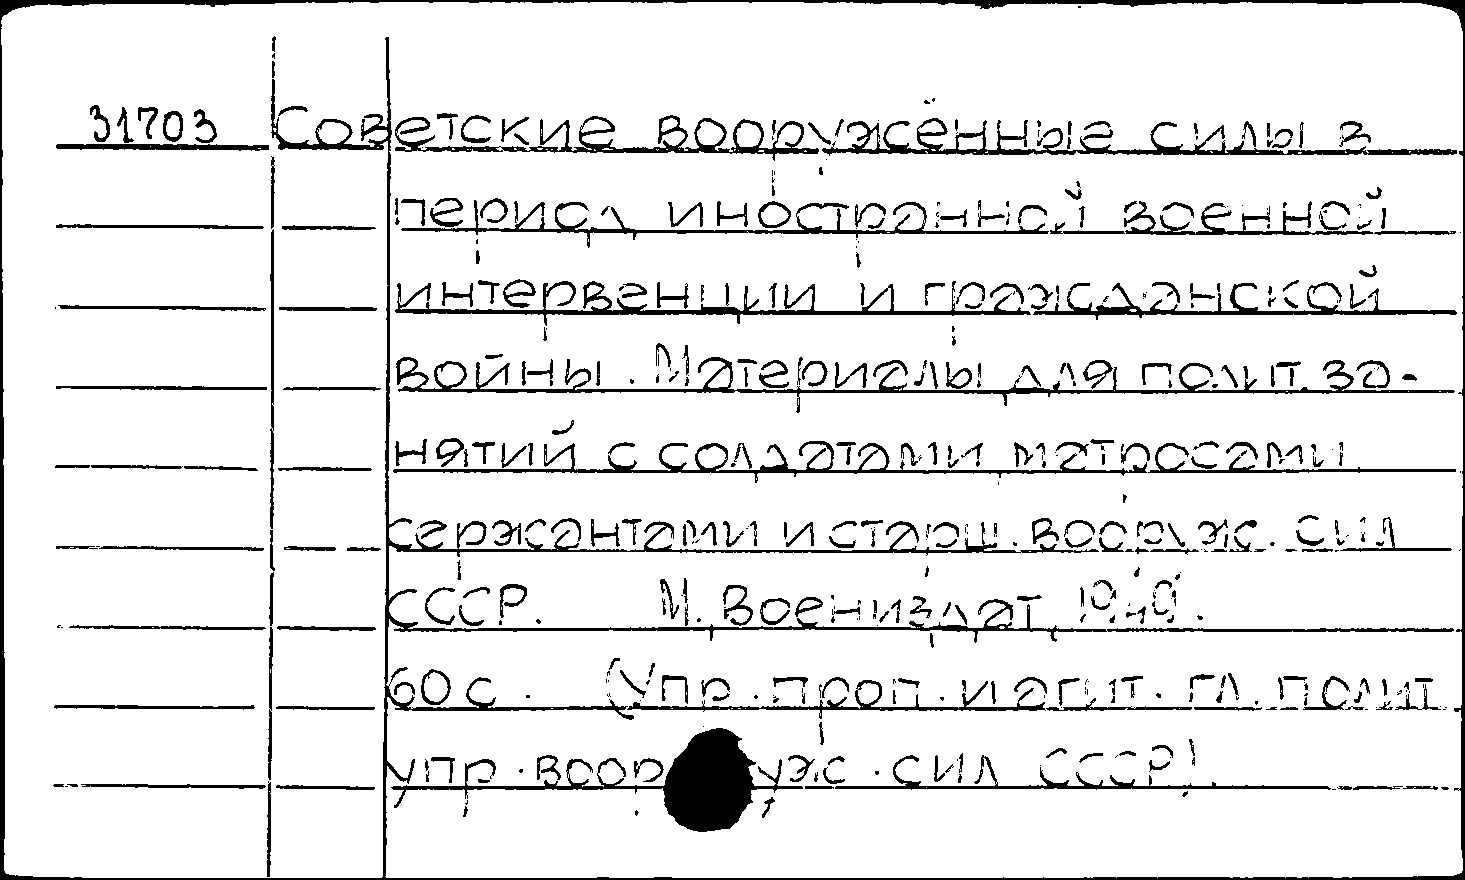 31703 Советские вооружённые силы в
период иностранной военной
интервенции и гражданской
войны. Материалы для полит. за-
нятий с солдатами матросами
сержантами и старш. вооруж. сил
СССР. М., Воениздат, 1949.
60 с. (Упр. проп. и агит. гл. полит.
упр. вооруж. сил СССР).